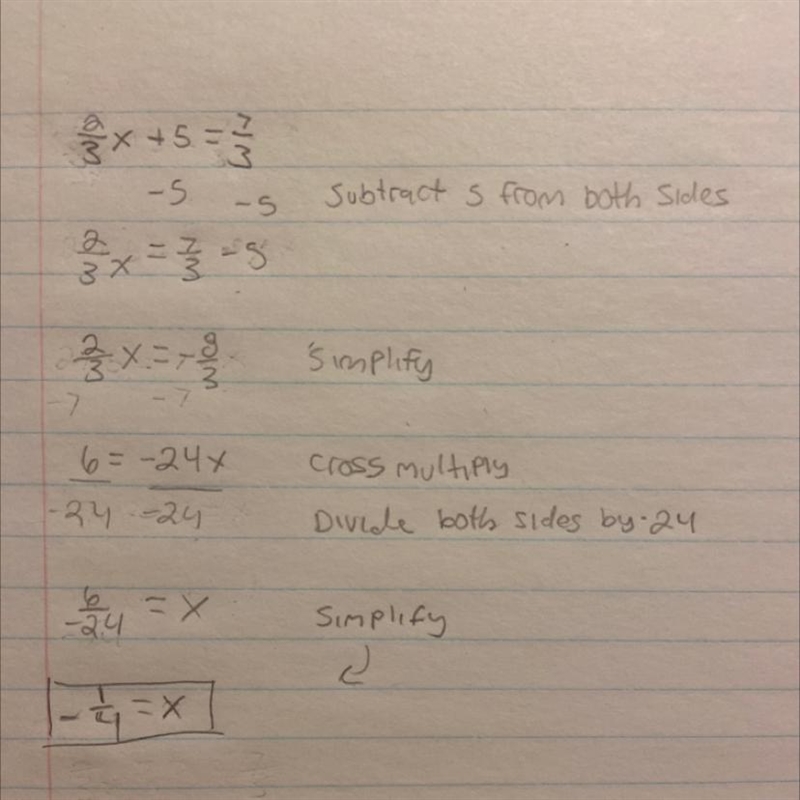 2/3 x + 5 = 7/3
-5 -5 Subtract 5 from both sides
2/3 x = 7/3 - 5
2/3 x = -8/3 Simplify
-7 -7
6 = -24x Cross multiply
-24 -24 Divide both sides by -24
6/-24 = x Simplify
-1/4 = x